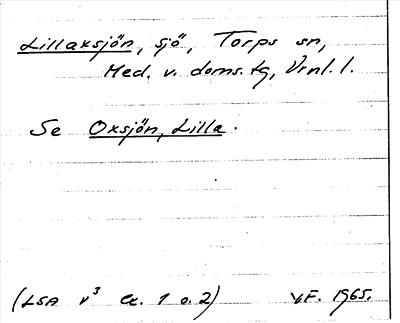 Lillaxsjön, sjö, Torps sn,
Med. v. doms. tg, Vrnl. l.
Se Oxsjön, Lilla.
(LSA v³ a. 1 o. 2) V.F. 1965.